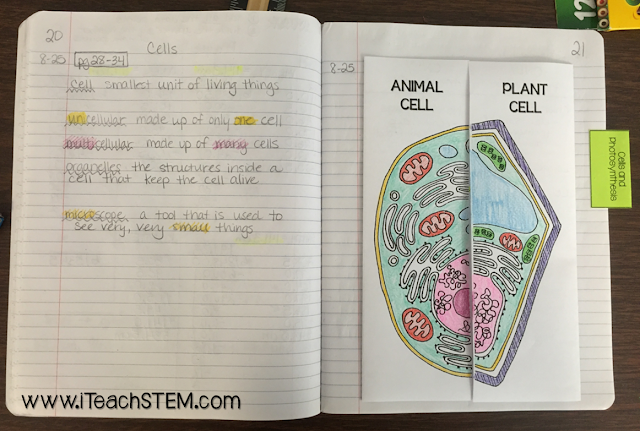 20
Cells
8-25 pg 28-34
cell smallest unit of living things
unicellular made up of only one cell
multicellular made up of many cells
organelles the structures inside a
cell that keep the cell alive
microscope a tool that is used to
see very, very small things
www.iTeachSTEM.com
21
8-25
ANIMAL
CELL
PLANT
CELL
Cells and
photosynthesis
12